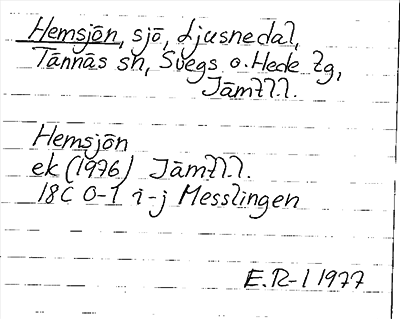 Hemsjön, sjö, Ljusnedal,
Tännäs sn, Svegs o. Hede tg,
Jämtl.l.
Hemsjön
ek (1976) Jämtl.l.
18C 0-1 i-j Messlingen
E.R-l 1977